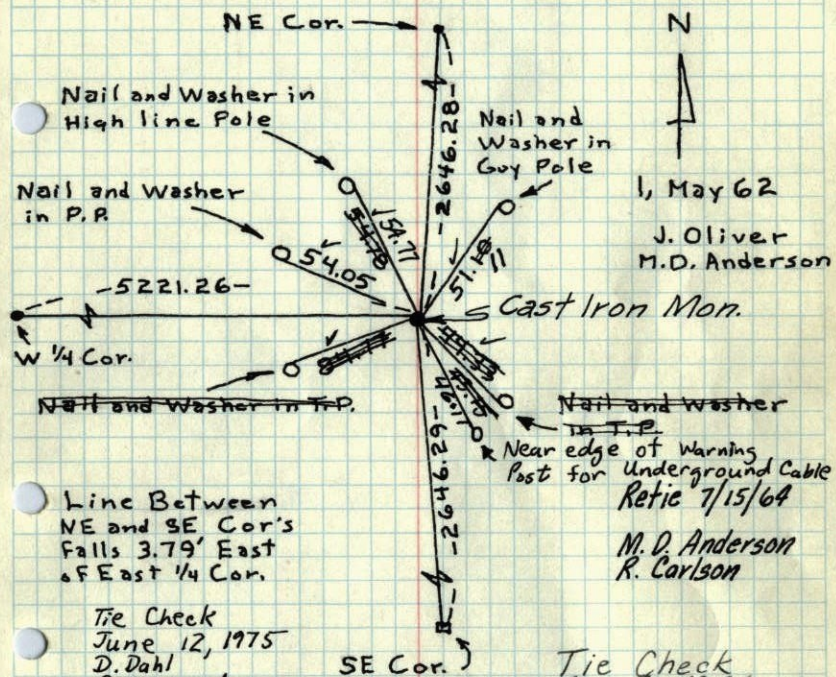 NE Cor.
N
Nail and Washer in
High line Pole
Nail and
Washer in
Guy Pole
-2646.28-
1, May 62
J. Oliver
M.D. Anderson
Nail and Washer
in P.P.
54.77
54.78
54.05
51.10
11
-5221.26-
Cast Iron Mon.
W 1/4 Cor.
44.33
46.17
Nail and Washer in T.P.
Nail and Washer
in T.P.
-2646.29-
Near edge of Warning
Post for Underground Cable
Retie 7/15/64
M.D. Anderson
R. Carlson
Line Between
NE and SE Cor's
Falls 3.79' East
of East 1/4 Cor.
Tie Check
June 12, 1975
D. Dahl
SE Cor.
Tie Check